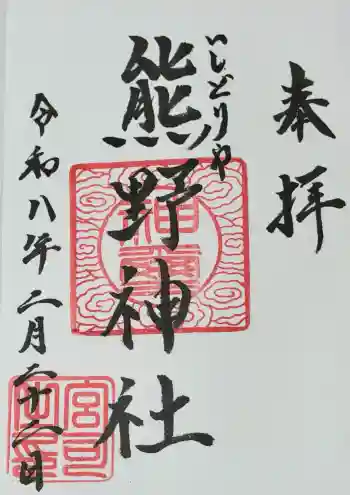 奉拝
いしどりや
熊野神社
令和八年二月二十二日